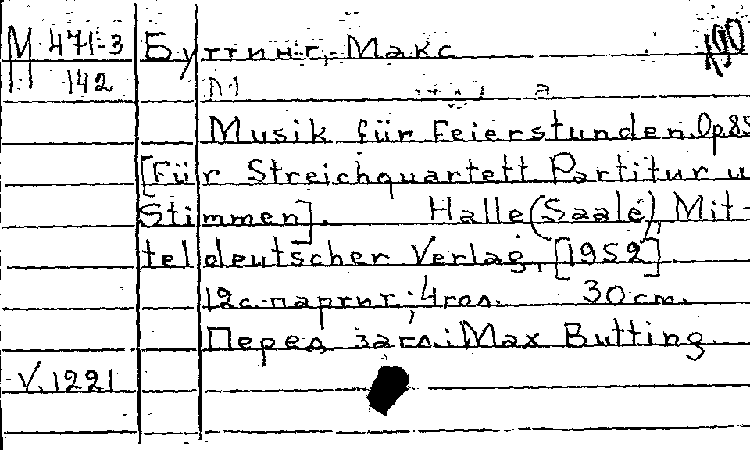 М 471-3 Буттинг, Макс 190
142
Musik für Feierstunden. Op. 85
[Für Streichquartett. Partitur u
Stimmen]. Halle (Saale), Mit-
teldeutscher Verlag, [1952].
12 с. партит.; 4 гол. 30 cm.
Перед загл.: Max Butting
V.1221